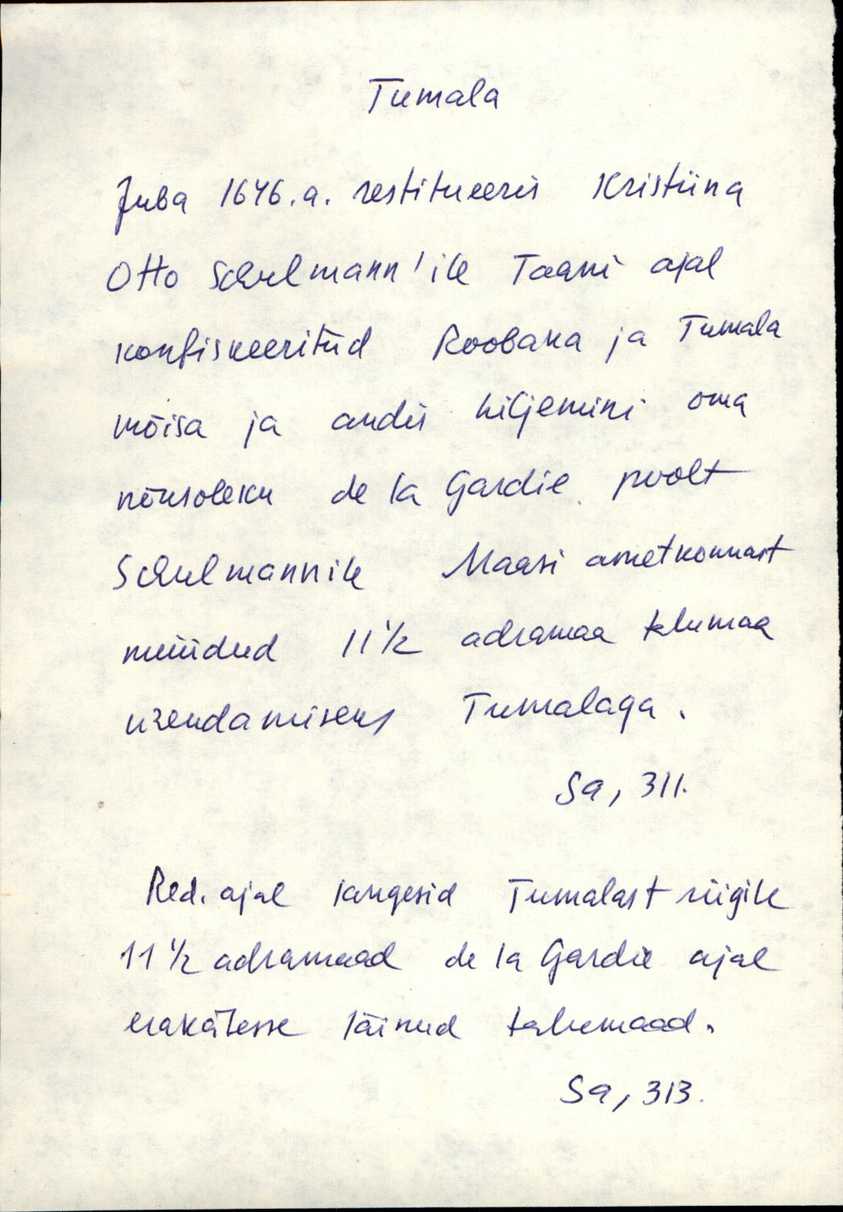 Tumala
Juba 1646.a. restitueeris Kristiina
Otto Schulmann'ile Taani ajal
konfiskeeritud Roobaka ja Tumala
mõisa ja andis hiljemini oma
nõusoleku de la Gardie poolt
Schulmannile Maasi ametkonnast
müüdud 11½ adramaa talumaa
ühendamiseks Tumalaga.
Sa, 311.
Red. ajal langesid Tumalast riigile
11½ adramaad de la Gardie ajal
erakätesse läinud talumaad.
Sa, 313.